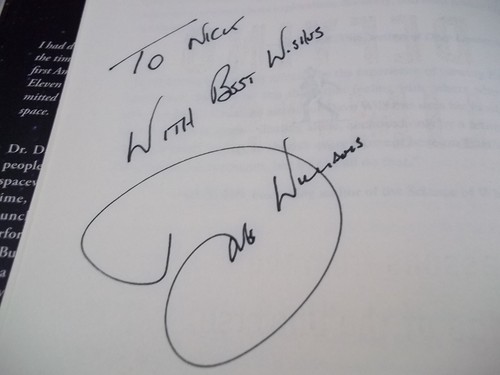 TO NICK
WITH BEST WISHES
Dave Williams
I had d
the tim
first Am
Eleven
mitted
space.
Dr. D
people
spacew
ime,
unch
rfor
Bu
a